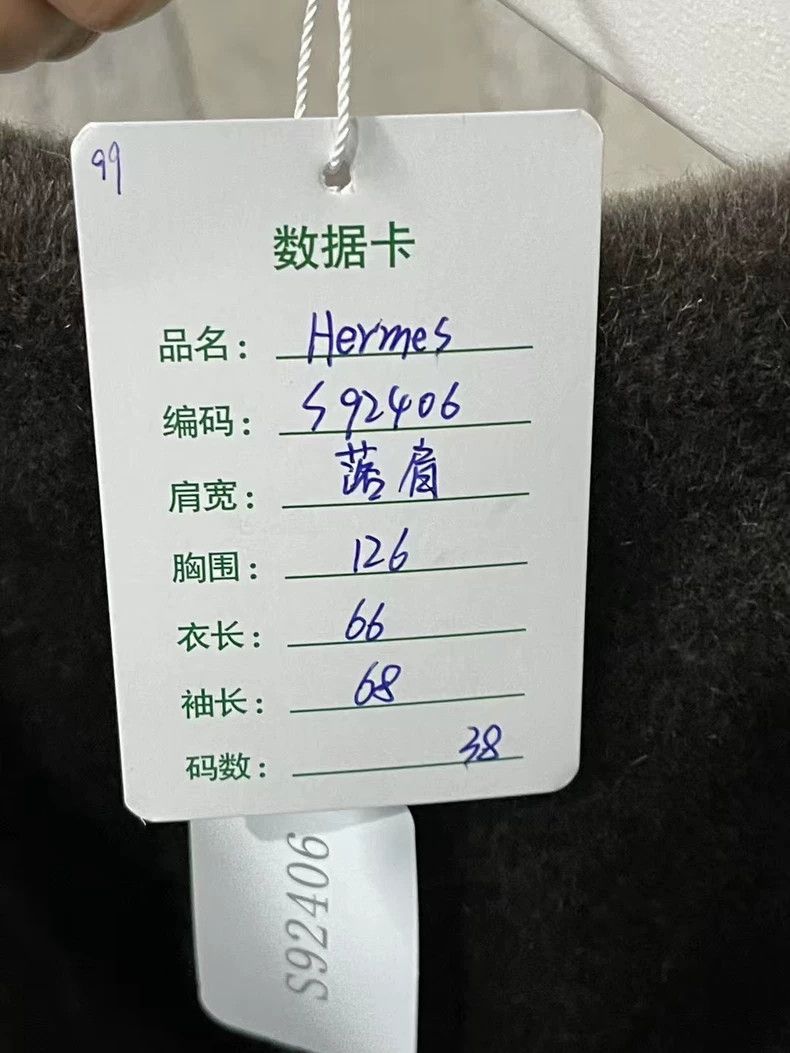 99
数据卡
品名: Hermes
编码: S92406
肩宽: 落肩
胸围: 126
衣长: 66
袖长: 68
码数: 38
S92406